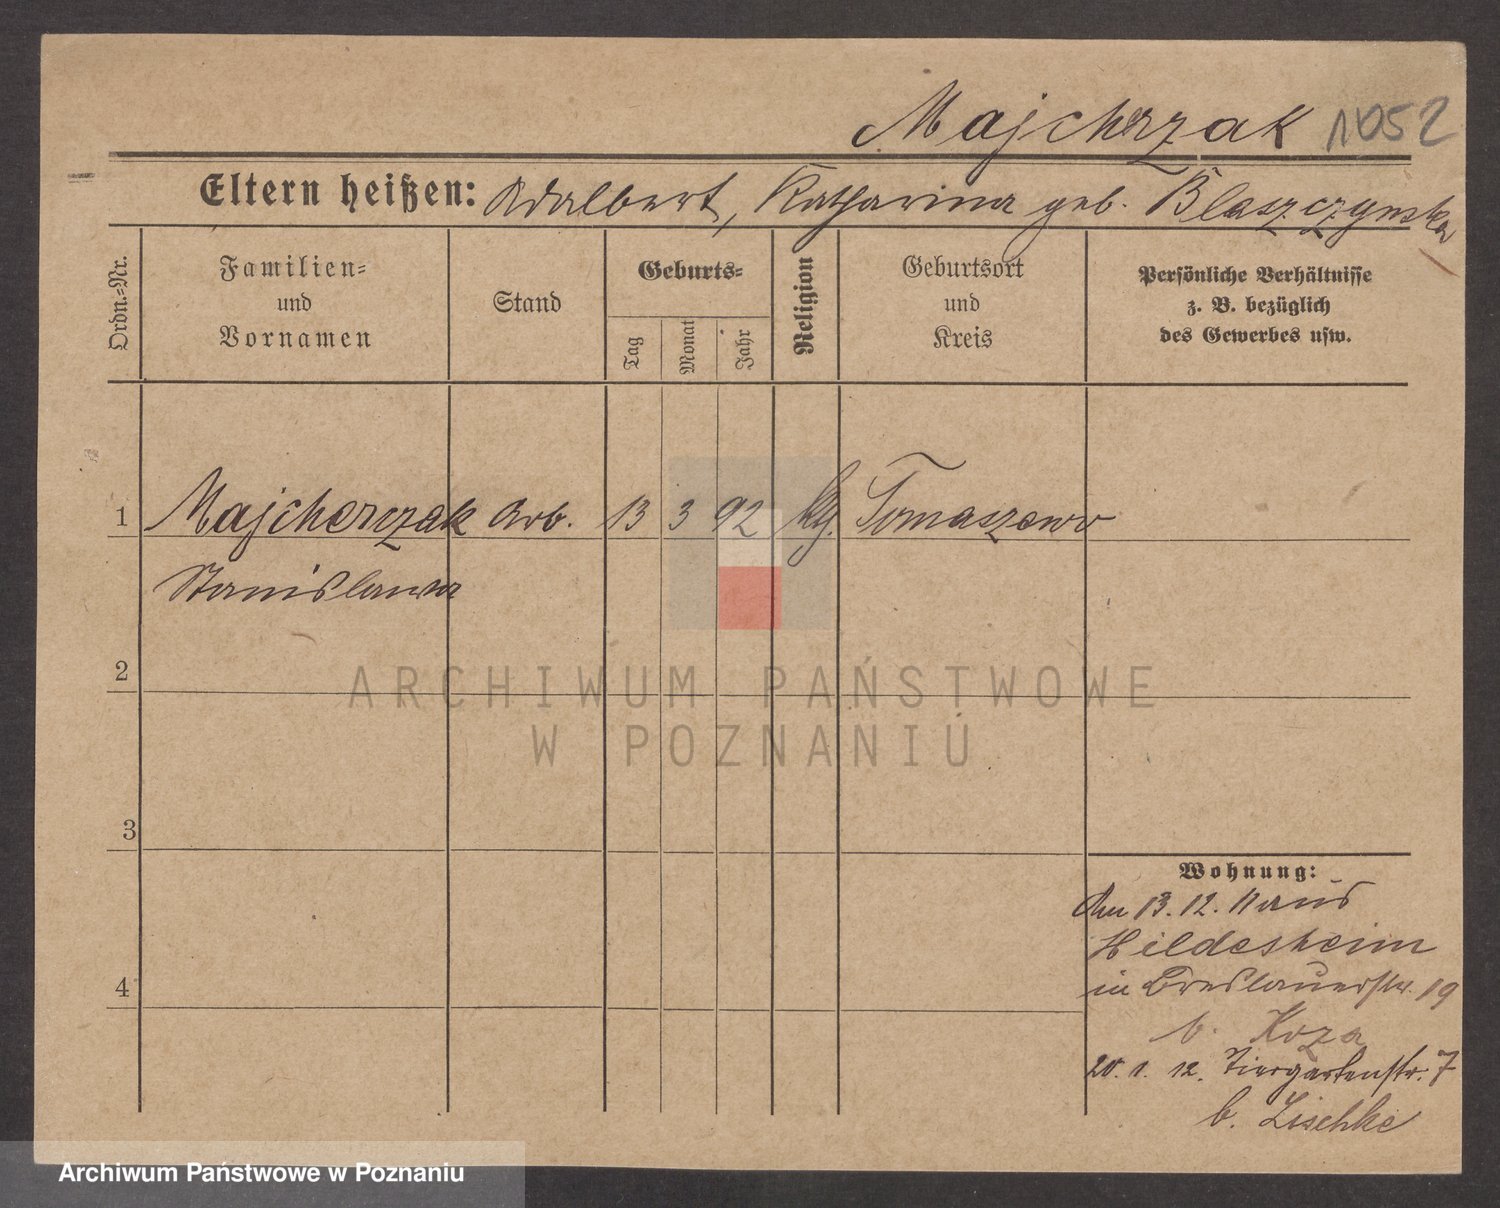 Majchrzak 1052
Eltern heißen: Adalbert, Katharina geb. Blaszczynska
Ordn.=Nr.
Familien=
und
Vornamen
Stand
Geburts=
Tag
Monat
Jahr
Religion
Geburtsort
und
Kreis
Persönliche Verhältnisse
z. B. bezüglich
des Gewerbes usw.
1 Majcherczak Arb. 13 3 92 Tomaszewo
Stanislawa
2
ARCHIWUM PAŃSTWOWE
W POZNANIU
3
Wohnung:
Am 13. 12. 11 aus
Hildesheim
4
in Breslauerstr. 19
b. Koza
20. 1. 12. Tiergartenstr. 7
b. Lischke
Archiwum Państwowe w Poznaniu